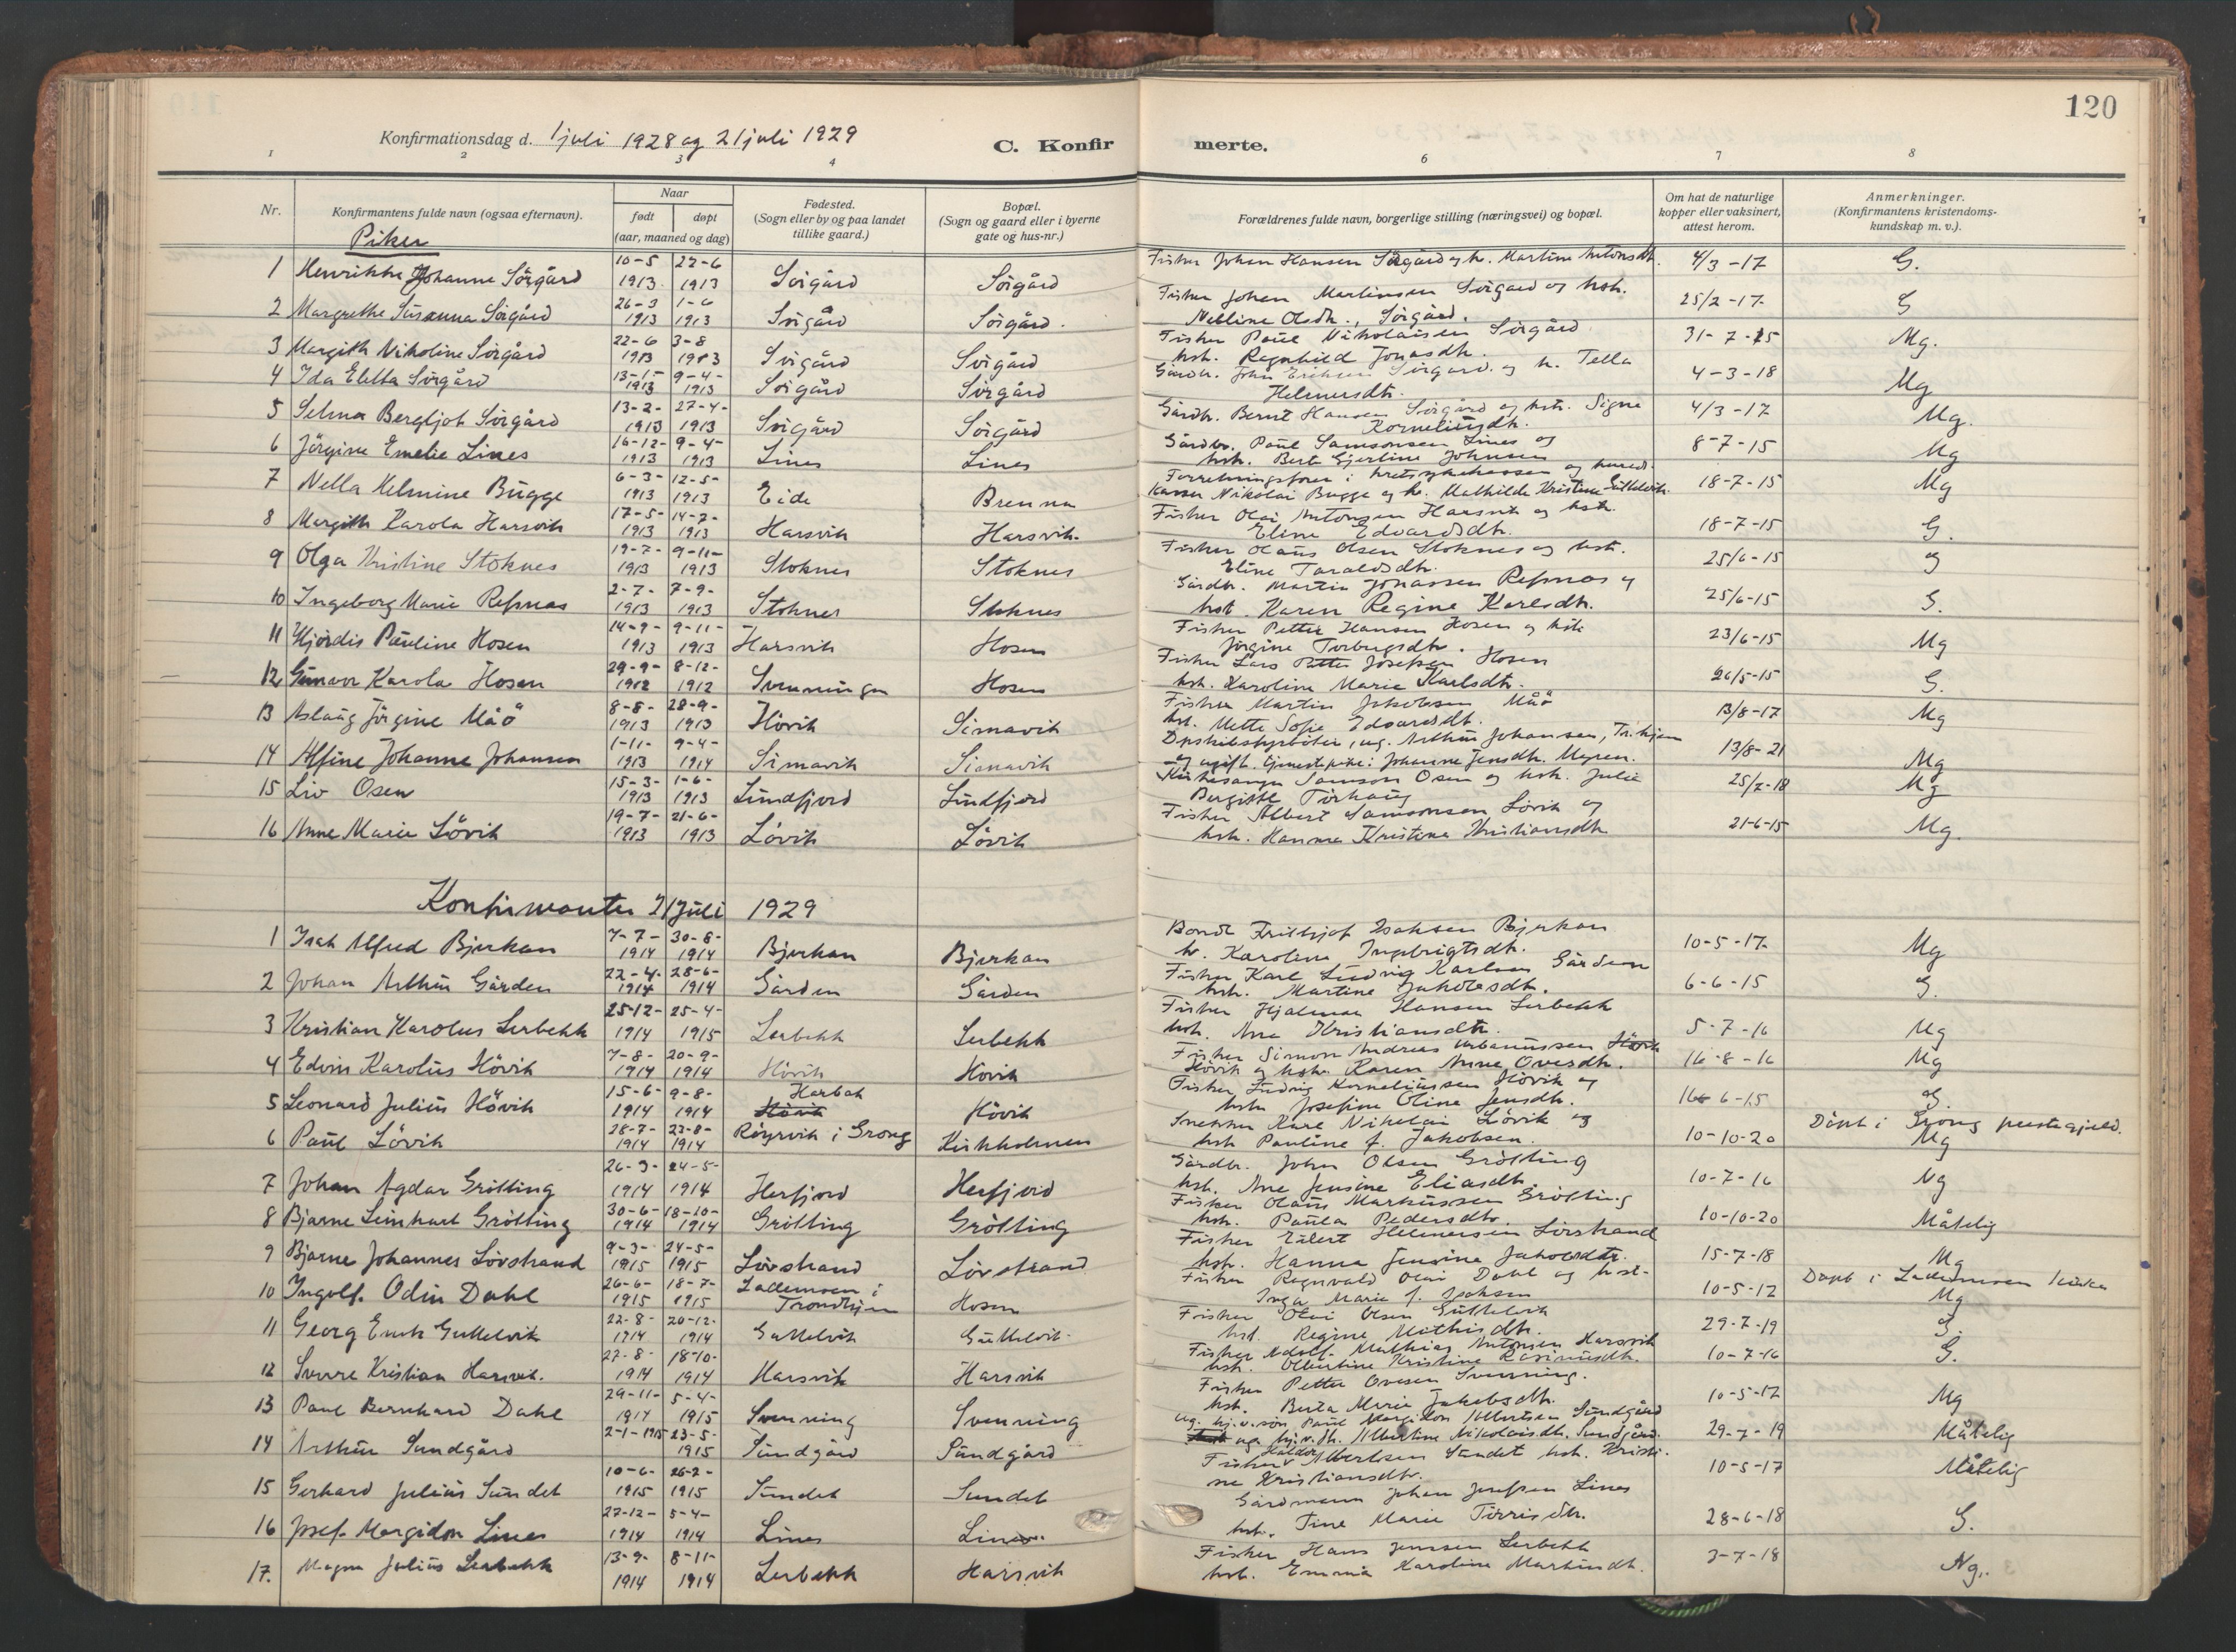 120
Konfirmationsdag d. 1 juli 1928 og 21 juli 1929
C. Konfir merte.
1 2 3 4 6 7 8
Nr. Konfirmantens fulde navn (ogsaa efternavn). Naar født døpt (aar, maaned og dag) Fødested. (Sogn eller by og paa landet tillike gaard.) Bopæl. (Sogn og gaard eller i byerne gate og hus-nr.) Forældrenes fulde navn, borgerlige stilling (næringsvei) og bopæl. Om hat de naturlige kopper eller vaksinert, attest herom. Anmerkninger. (Konfirmantens kristendoms-kundskap m. v.).
Piker
1 Henrikke Johanne Sörgård 10-5 1913 22-6 1913 Sörgård Sörgård Fisker Johan Hansen Sörgård og h. Martine Antonsdtr. 4/3-17 G.
2 Margrethe Susanna Sörgård 26-3 1913 1-6 1913 Sörgård Sörgård. Fisker Johan Martinsen Sörgård og hstr. Nelline Olsdtr., Sörgård. 25/2-17 G
3 Margith Nikoline Sörgård 22-6 1913 3-8 1913 Sörgård Sörgård Fisker Paul Nikolaisen Sörgård hstr. Ragnhild Jonasdtr. 31-7-15 Mg.
4 Ida Eletta Sörgård 13-1- 1913 9-4- 1913 Sörgård Sörgård Gårdbr. John Eriksen Sörgård og h. Tella Helmersdtr. 4-3-18 Mg
5 Selma Bergljot Sörgård 13-2- 1913 27-4- 1913 Sörgård Sörgård Gårdbr. Bernt Hansen Sörgård og hstr. Signe Korneliusdtr. 4/3-17 Mg.
6 Jörgine Emelie Lines 16-12- 1913 9-4- 1913 Lines Lines Gårdbr. Paul Samsonsen Lines og hstr. Bert Gjertine Johnsen 8-7-15 Mg
7 Nella Helmine Bugge 6-3- 1913 12-5- 1913 Eide Brenna Forretningsfører i kretssykekassen og herreds-kasser Nikolai Bugge og h. Mathilde Kristine Guttelvik. 18-7-15 Mg
8 Margith Karola Harsvik 17-5- 1913 14-7- 1913 Harsvik Harsvik. Fisker Olai Antonsen Harsvik og hstr. Eline Edvardsdtr. 18-7-15 G.
9 Olga Kristine Stoknes 19-7- 1913 9-11- 1913 Stoknes Stoknes Fisker Olaus Olsen Stoknes og hstr. Eline Taraldsdtr. 25/6-15 G
10 Ingeborg Marie Refsnas 2-7- 1913 7-9- 1913 Stoknes Stoknes Gårdbr. Martin Jonassen Refsnas og hst. Karen Regine Karlsdtr. 25/6-15 G.
11 Hjördis Pauline Hosen 14-9- 1913 9-11- 1913 Harsvik Hosen Fisker Petter Hansen Hosen og hstr Jörgine Torbergsdtr. 23/6-15 Mg
12 Gunvor Karola Hosen 29-9- 1912 8-12- 1912 Svenningen Hosen Fisker Lars Petter Josefsen Hosen hst. Karoline Marie Karlsdtr. 26/5-15 G.
13 Aslaug Jörgine Måö 8-8- 1913 28-9- 1913 Hövik Simavik Fisker Martin Jakobsen Måö hst. Mette Sofie Edvardsdt. 13/8-17 Mg
14 Alfine Johanne Johansen 1-11- 1913 9-4- 1914 Simavik Simavik ug. Arthur Johansen, Tr.hjem og ugift tjenestepike: Johanne Jensdtr. Myren. 13/8-21 Mg
15 Liv Osen 15-3- 1913 1-6- 1913 Sundfjord Sundfjord Kirkesanger Samson Osen og hstr. Julie Bergitte Torhaug 25/2-18 Mg
16 Anne Marie Lövik 19-7- 1913 21-6- 1913 Lövik Lövik Fisker Albert Samsonsen Lövik og hstr. Hanna Kristine Kristiansdtr 21-6-15 Mg.
Konfirmanter 21 juli 1929
1 Isak Alfred Bjerkan 7-7- 1914 30-8- 1914 Bjerkan Bjerkan Bonde Fridthjof Isaksen Bjerkan h. Karoline Ingebrigtsdtr. 10-5-17 Mg
2 Johan Arthur Gården 22-4- 1914 28-6- 1914 Gården Gården Fisker Karl Ludvig Karlsen Gården hstr. Martine Jakobsdtr. 6-6-15 G.
3 Kristian Karolus Lerbekk 25-12- 1914 25-4- 1915 Lerbekk Lerbekk Fisker Hjalmar Hansen Lerbekk hst. Ane Kristiansdtr. 5-7-16 Mg
4 Edvin Karolius Hövik 7-8- 1914 20-9- 1914 Hövik Hövik Fisker Simon Andreas Urbanussen Hövik og hstr. Karen Anne Ovesdtr. 16-8-16 Mg
5 Leonard Julius Hövik 15-6- 1914 9-8- 1914 Harbak Hövik Fisker Ludvig Korneliussen Hövik og hstr Josefine Oline Jensdtr. 16-6-15 G.
6 Paul Lövik 28-7- 1914 23-8- 1914 Röyrvik i Grong Kirkholmen Snekker Karl Nikolai Lövik og hstr Pauline f. Jakobsen. 10-10-20 Döpt i Grong prestegjeld. Mg
7 Johan Agdar Grötting 26-3- 1914 24-5- 1914 Herfjord Herfjord Gårdbr. John Olsen Grötting hst. Ane Jensine Eliasdtr. 10-7-16 Ng
8 Bjarne Leinhart Grötting 30-6- 1914 18-10- 1914 Grötting Grötting Fisker Olaus Markussen Grötting hstr. Paula Pedersdtr. 10-10-20 Måtelig
9 Bjarne Johannes Lövstrand 9-3- 1915 24-5- 1915 Lövstrand Lövstrand Fisker Eilert Helmersen Lövstrand hstr. Hanna Jensine Jakobsdtr. 15-7-18 Mg
10 Ingolf Odin Dahl 26-6- 1915 18-7- 1915 Lademoen i Trondhjem Hosen Fisker Ragnvald Olai Dahl og hst- Inga Marie f. Isaksen 10-5-17 Döpt i Lademoen kirke Mg
11 Georg Enok Guttelvik 22-8- 1914 20-12- 1914 Guttelvik Guttelvik- Fisker Olai Olsen Guttelvik hst. Regine Mathisdtr. 29-7-19 G.
12 Sverre Kristian Harsvik. 27-8- 1914 18-10- 1914 Harsvik Harsvik Fisker Adolf Mathias Antonsen Harsvik hstr. Olbertine Kristine Rasmusdtr. 10-7-16 G.
13 Paul Bernhard Dahl 29-11- 1914 5-4- 1915 Svenning Svenning Fisker Petter Ovesen Svenning. hst. Berta Marie Jakobsdtr. 10-5-17 Mg
14 Arthur Sundgård 2-1-1915 23-5- 1915 Sundgård Sundgård ug. hj.v. sön Paul Margidon Albertsen Sundgård og ug hj.v.dtr. Albertine Nikolaisdtr. Sundgård. 29-7-19 Måtelig
15 Gerhard Julius Sundet 10-6- 1915 26-7- 1915 Sundet Sundet Fisker Haldor Albertsen Sundet hst. Kristine Kristiansdtr. 10-5-17 Måtelig
16 Josef Margidon Lines 27-12- 1914 5-4- 1914 Lines Lines. Gårdmann Johan Josefsen Lines hst. Tine Marie Torrisdtr. 28-6-18 G.
17. Magne Julius Lerbekk 13-9- 1914 8-11- 1914 Lerbekk Harsvik Fisker Hans Jensen Lerbekk hst. Emma Karoline Martinsdt. 3-7-18 Ng.